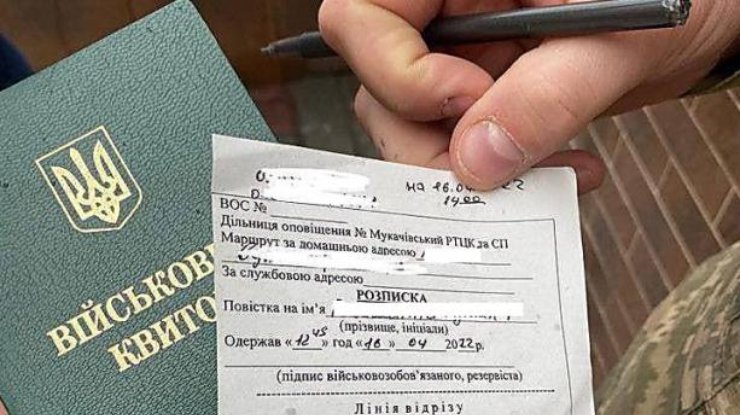 ВІЙСЬКОВИ
КВИТО
на 16.04 22
14⁰⁰
ВОС №
Дільниця оповіщення № Мукачівський РТЦК та СП
Маршрут за домашньою адресою
За службовою адресою
РОЗПИСКА
Повістка на ім'я
(прізвище, ініціали)
Одержав «12⁴⁵» год «16» 04 2022г.
(підпис військовозобов'язаного, резервіста)
Лінія відрізу